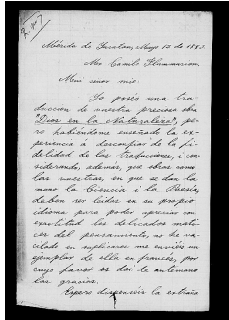 Mérida de Yucatan, Mayo 15 de 1883.
Mr. Camilo Flammarion.
Mui señor mio:
Yo poséo una tra-
duccion de vuestra preciosa obra
"Dios en la Naturaleza", pe-
ro habiéndome enseñado la ex-
periencia á desconfiar de la fi-
delidad de los traductores, i con-
siderando, ademas, que obras como
las vuestras, en que se dan la
mano la Ciencia i la Poesía,
deben ser leidas en su propio
idioma para poder apreciar con
exactitud los delicados mati-
ces del pensamiento, no he va-
cilado en suplicaros me enviéis un
ejemplar de ella en francés, por
cuyo favor os doi de antemano
las gracias.
Espero dispenseis la extraña